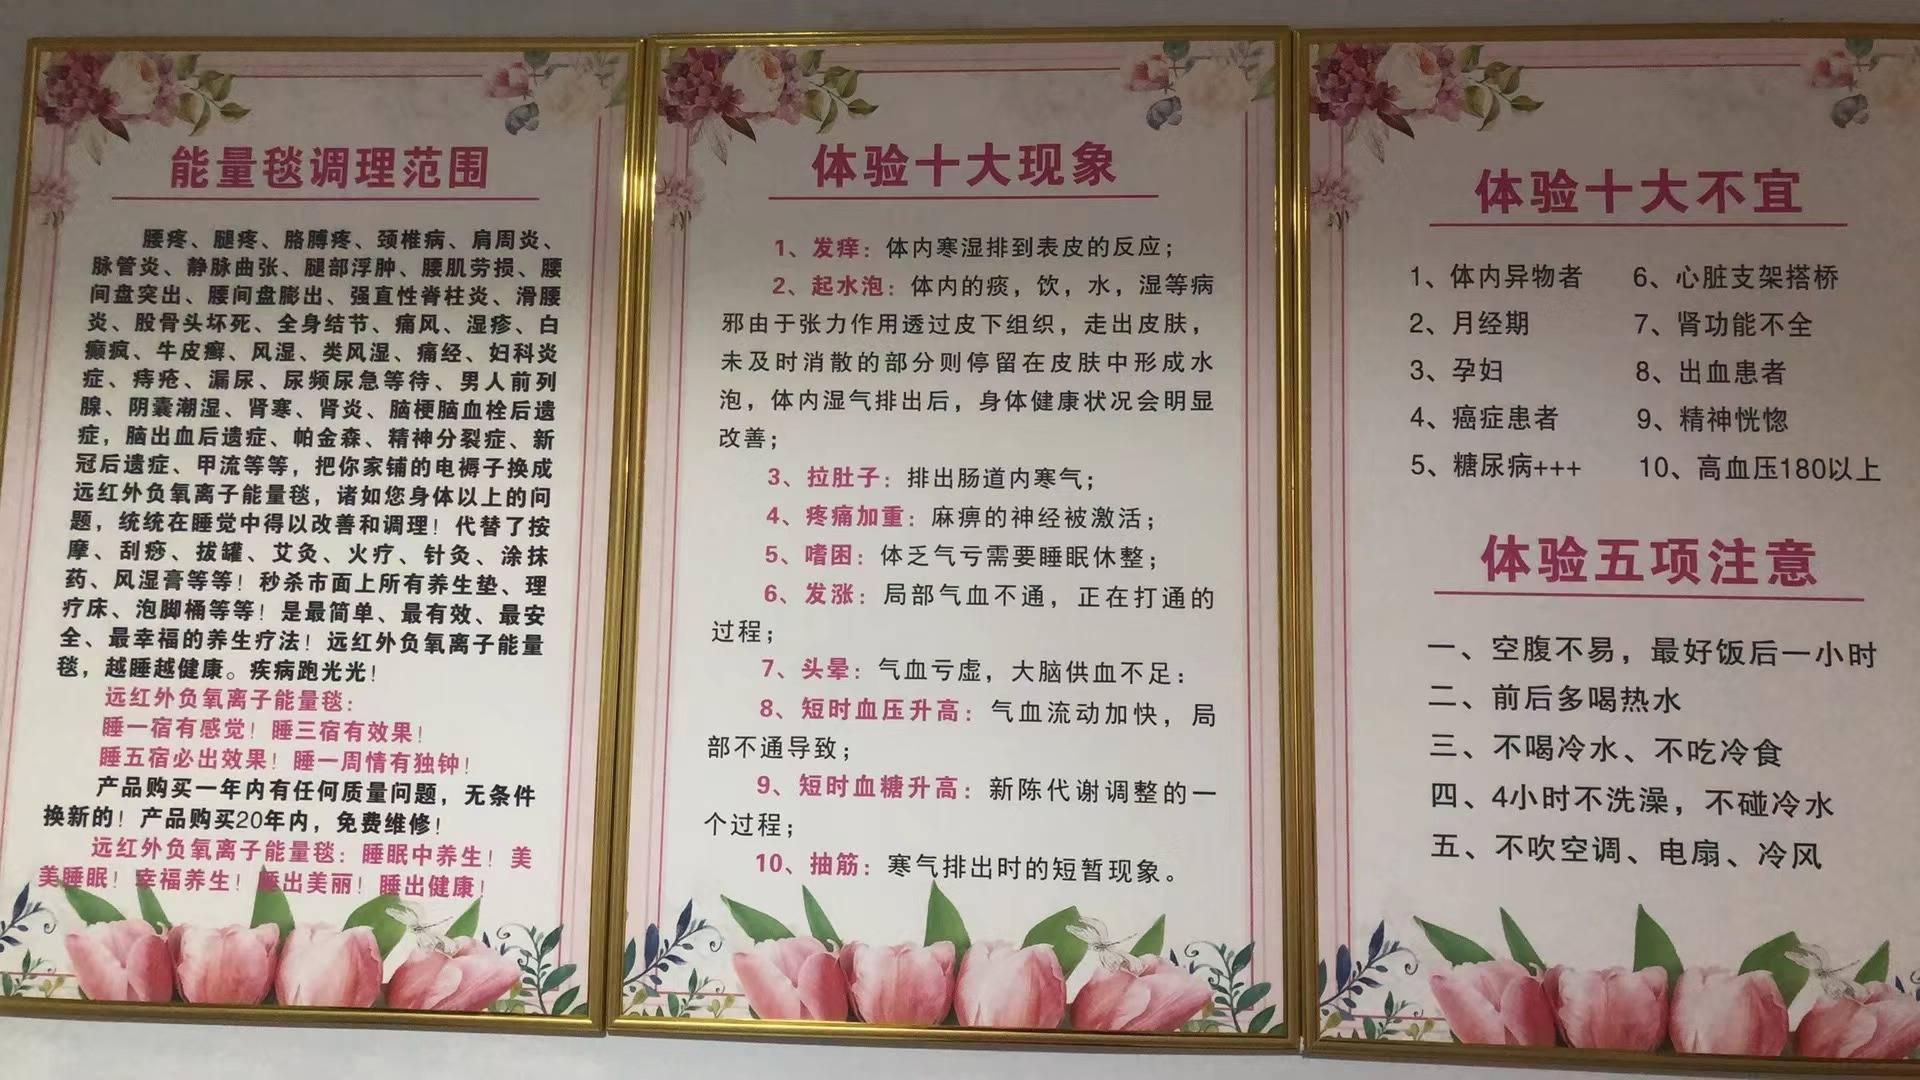 能量毯调理范围
腰疼、腿疼、胳膊疼、颈椎病、肩周炎、
脉管炎、静脉曲张、腿部浮肿、腰肌劳损、腰
间盘突出、腰间盘膨出、强直性脊柱炎、滑腰
炎、股骨头坏死、全身结节、痛风、湿疹、白
癫疯、牛皮癣、风湿、类风湿、痛经、妇科炎
症、痔疮、漏尿、尿频尿急等待、男人前列
腺、阴囊潮湿、肾寒、肾炎、脑梗脑血栓后遗
症，脑出血后遗症、帕金森、精神分裂症、新
冠后遗症、甲流等等，把你家铺的电褥子换成
远红外负氧离子能量毯，诸如您身体以上的问
题，统统在睡觉中得以改善和调理！代替了按
摩、刮痧、拔罐、艾灸、火疗、针灸、涂抹
药、风湿膏等等！秒杀市面上所有养生垫、理
疗床、泡脚桶等等！是最简单、最有效、最安
全、最幸福的养生疗法！远红外负氧离子能量
毯，越睡越健康。疾病跑光光！
远红外负氧离子能量毯：
睡一宿有感觉！睡三宿有效果！
睡五宿必出效果！睡一周情有独钟！
产品购买一年内有任何质量问题，无条件
换新的！产品购买20年内，免费维修！
远红外负氧离子能量毯：睡眠中养生！美
美睡眠！幸福养生！睡出美丽！睡出健康！
体验十大现象
1、发痒：体内寒湿排到表皮的反应；
2、起水泡：体内的痰，饮，水，湿等病
邪由于张力作用透过皮下组织，走出皮肤，
未及时消散的部分则停留在皮肤中形成水
泡，体内湿气排出后，身体健康状况会明显
改善；
3、拉肚子：排出肠道内寒气；
4、疼痛加重：麻痹的神经被激活；
5、嗜困：体乏气亏需要睡眠休整；
6、发涨：局部气血不通，正在打通的
过程；
7、头晕：气血亏虚，大脑供血不足：
8、短时血压升高：气血流动加快，局
部不通导致；
9、短时血糖升高：新陈代谢调整的一
个过程；
10、抽筋：寒气排出时的短暂现象。
体验十大不宜
1、体内异物者
2、月经期
3、孕妇
4、癌症患者
5、糖尿病+++
6、心脏支架搭桥
7、肾功能不全
8、出血患者
9、精神恍惚
10、高血压180以上
体验五项注意
一、空腹不易，最好饭后一小时
二、前后多喝热水
三、不喝冷水、不吃冷食
四、4小时不洗澡，不碰冷水
五、不吹空调、电扇、冷风